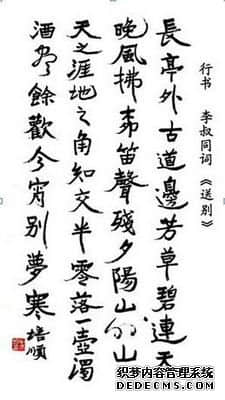 行书 李叔同词 《送别》
長亭外古道邊芳草碧連天
晚風拂柳笛聲殘夕陽山外山
天之涯地之角知交半零落一壺濁
酒尽餘歡今宵別夢寒 培順
织梦内容管理系统
DEDECMS.COM